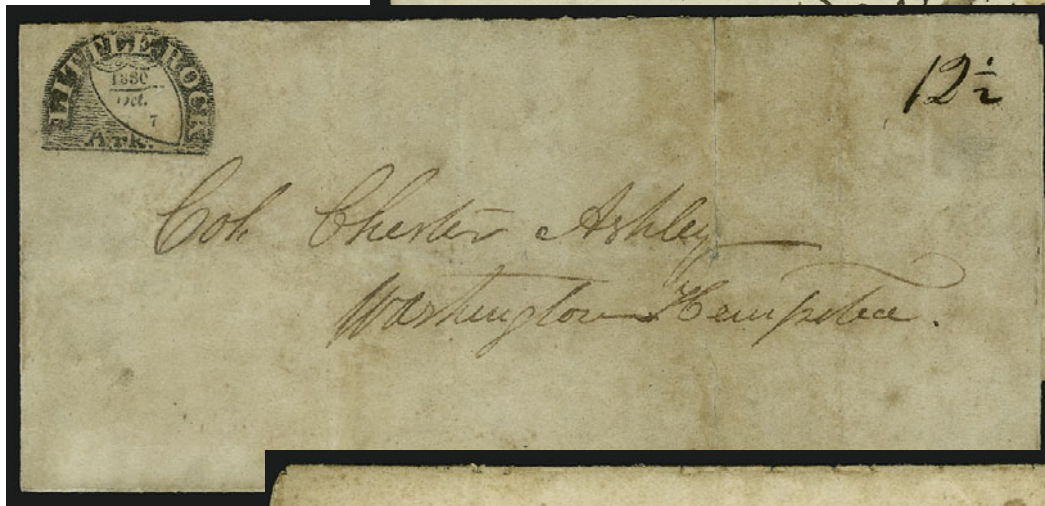 LITTLE ROCK
1830
Oct.
7
Ark.
12 ½
Col. Chester Ashley
Washington Hempstea.